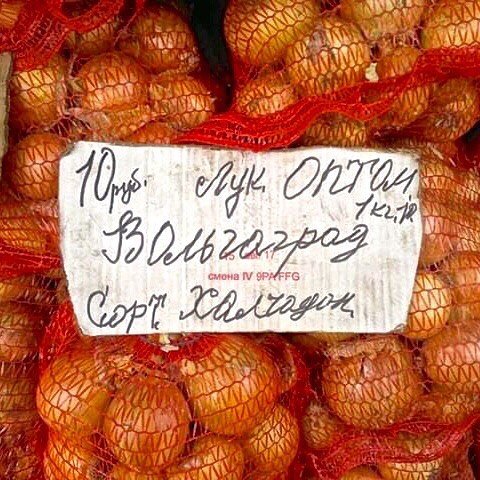 10 руб. Лук ОПТОМ
1 кг.
Волгоград
смена IV 9PAYFFG
Сорт Халчадон